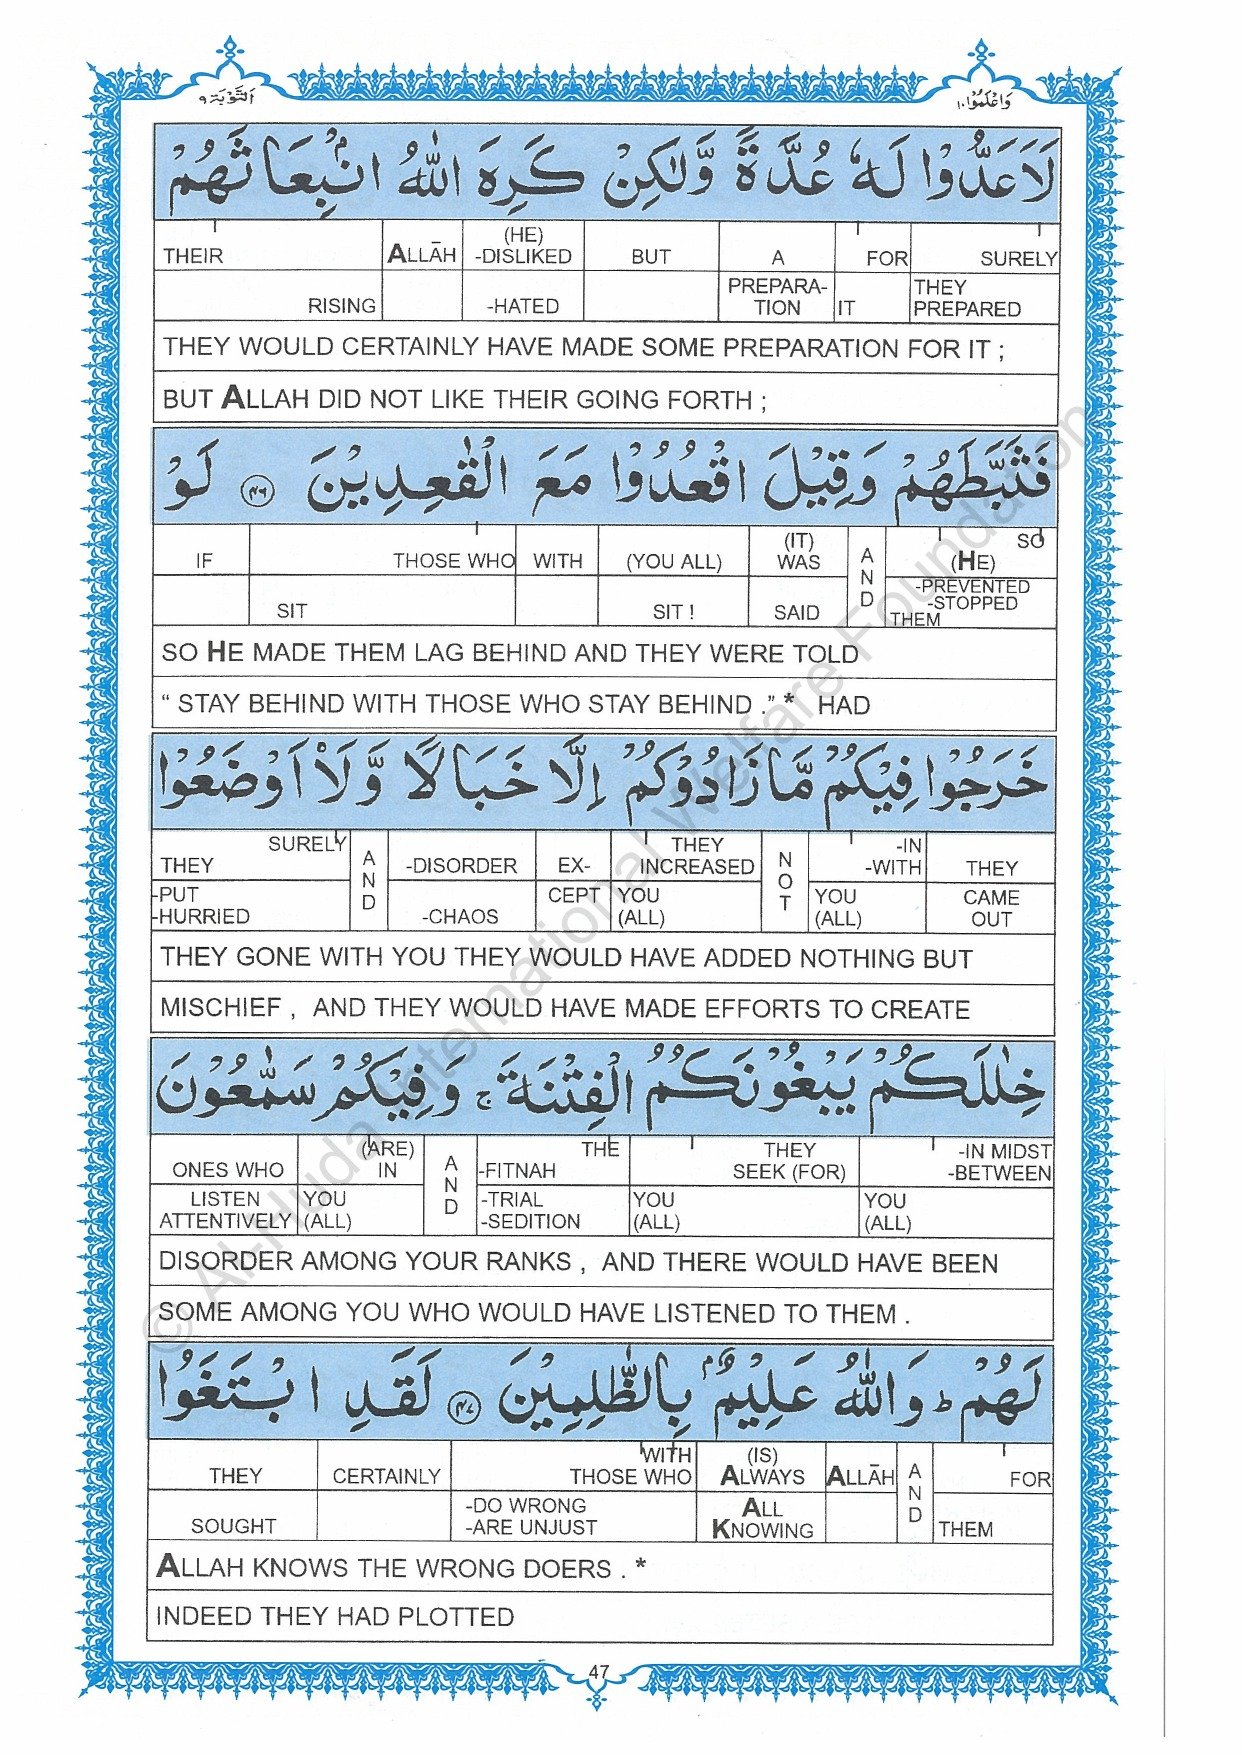 التَّوْبَة ٩
وَاعْلَمُوْا ١٠
لَاَعَدُّوْا لَهٗ عُدَّةً وَّلٰكِنْ كَرِهَ اللّٰهُ انْۢبِعَاثَهُمْ
THEIR ALLĀH (HE) -DISLIKED BUT A FOR SURELY
RISING -HATED PREPARA- TION IT THEY PREPARED
THEY WOULD CERTAINLY HAVE MADE SOME PREPARATION FOR IT ;
BUT ALLAH DID NOT LIKE THEIR GOING FORTH ;
فَثَبَّطَهُمْ وَقِيْلَ اقْعُدُوْا مَعَ الْقٰعِدِيْنَ ﴿٤٦﴾ لَوْ
IF THOSE WHO WITH (YOU ALL) (IT) WAS AND SO (HE)
SIT SIT ! SAID -PREVENTED -STOPPED THEM
SO HE MADE THEM LAG BEHIND AND THEY WERE TOLD
“ STAY BEHIND WITH THOSE WHO STAY BEHIND .” * HAD
خَرَجُوْا فِيْكُمْ مَّا زَادُوْكُمْ اِلَّا خَبَالًا وَّلَاْ اَوْضَعُوْا
THEY SURELY AND -DISORDER EX- THEY INCREASED NOT -IN -WITH THEY
-PUT -HURRIED -CHAOS CEPT YOU (ALL) YOU (ALL) CAME OUT
THEY GONE WITH YOU THEY WOULD HAVE ADDED NOTHING BUT
MISCHIEF , AND THEY WOULD HAVE MADE EFFORTS TO CREATE
خِلٰلَكُمْ يَبْغُوْنَكُمُ الْفِتْنَةَ ۚ وَفِيْكُمْ سَمّٰعُوْنَ
ONES WHO (ARE) IN AND THE -FITNAH THEY SEEK (FOR) -IN MIDST -BETWEEN
LISTEN ATTENTIVELY YOU (ALL) -TRIAL -SEDITION YOU (ALL) YOU (ALL)
DISORDER AMONG YOUR RANKS , AND THERE WOULD HAVE BEEN
SOME AMONG YOU WHO WOULD HAVE LISTENED TO THEM .
لَهُمْ ؕ وَاللّٰهُ عَلِيْمٌۢ بِالظّٰلِمِيْنَ ﴿٤٧﴾ لَقَدِ ابْتَغَوُا
THEY CERTAINLY WITH THOSE WHO (IS) ALWAYS ALLĀH AND FOR
SOUGHT -DO WRONG -ARE UNJUST ALL KNOWING THEM
ALLAH KNOWS THE WRONG DOERS . *
INDEED THEY HAD PLOTTED
47
© Al-Huda International Welfare Foundation